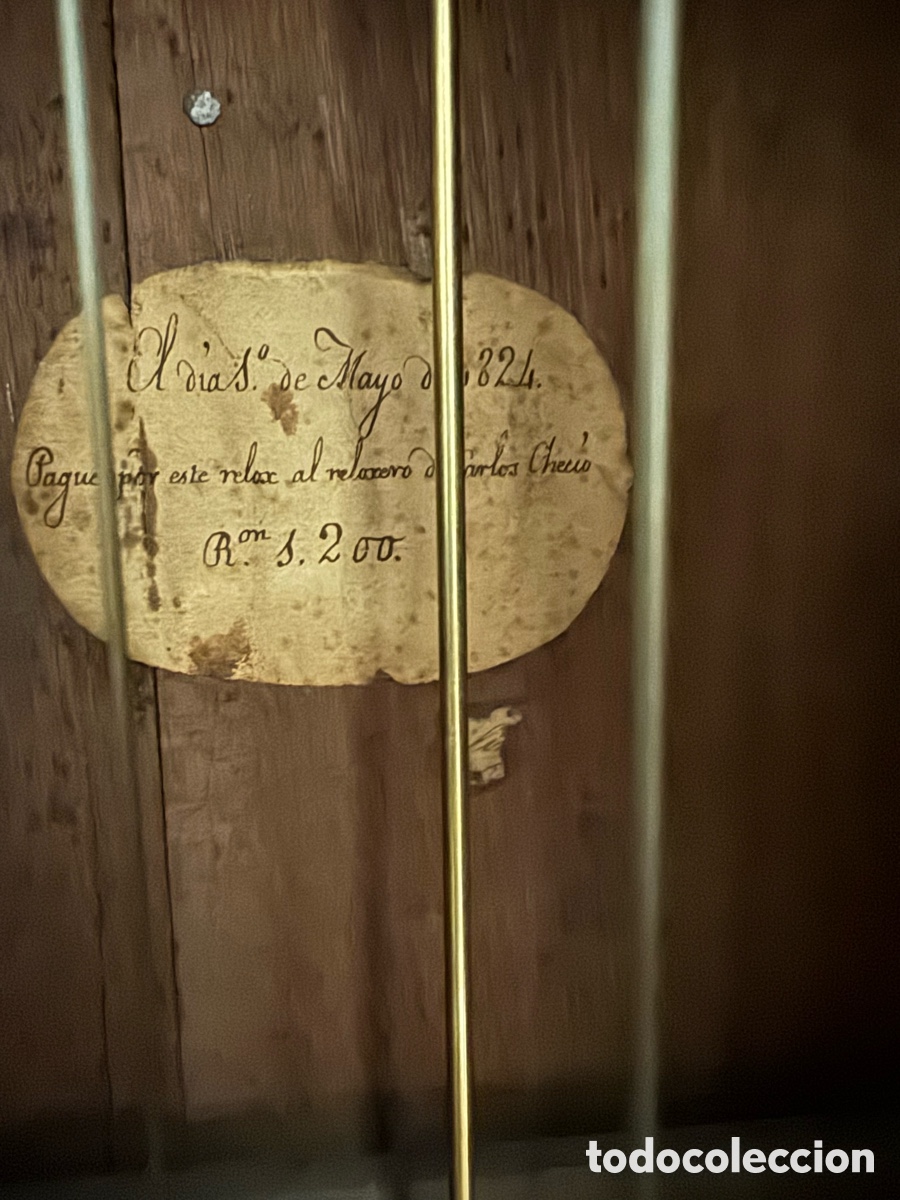 El día 1.º de Mayo de 1824.
Pague por este relox al reloxero dn Carlos
R.on 1.200.
todocoleccion